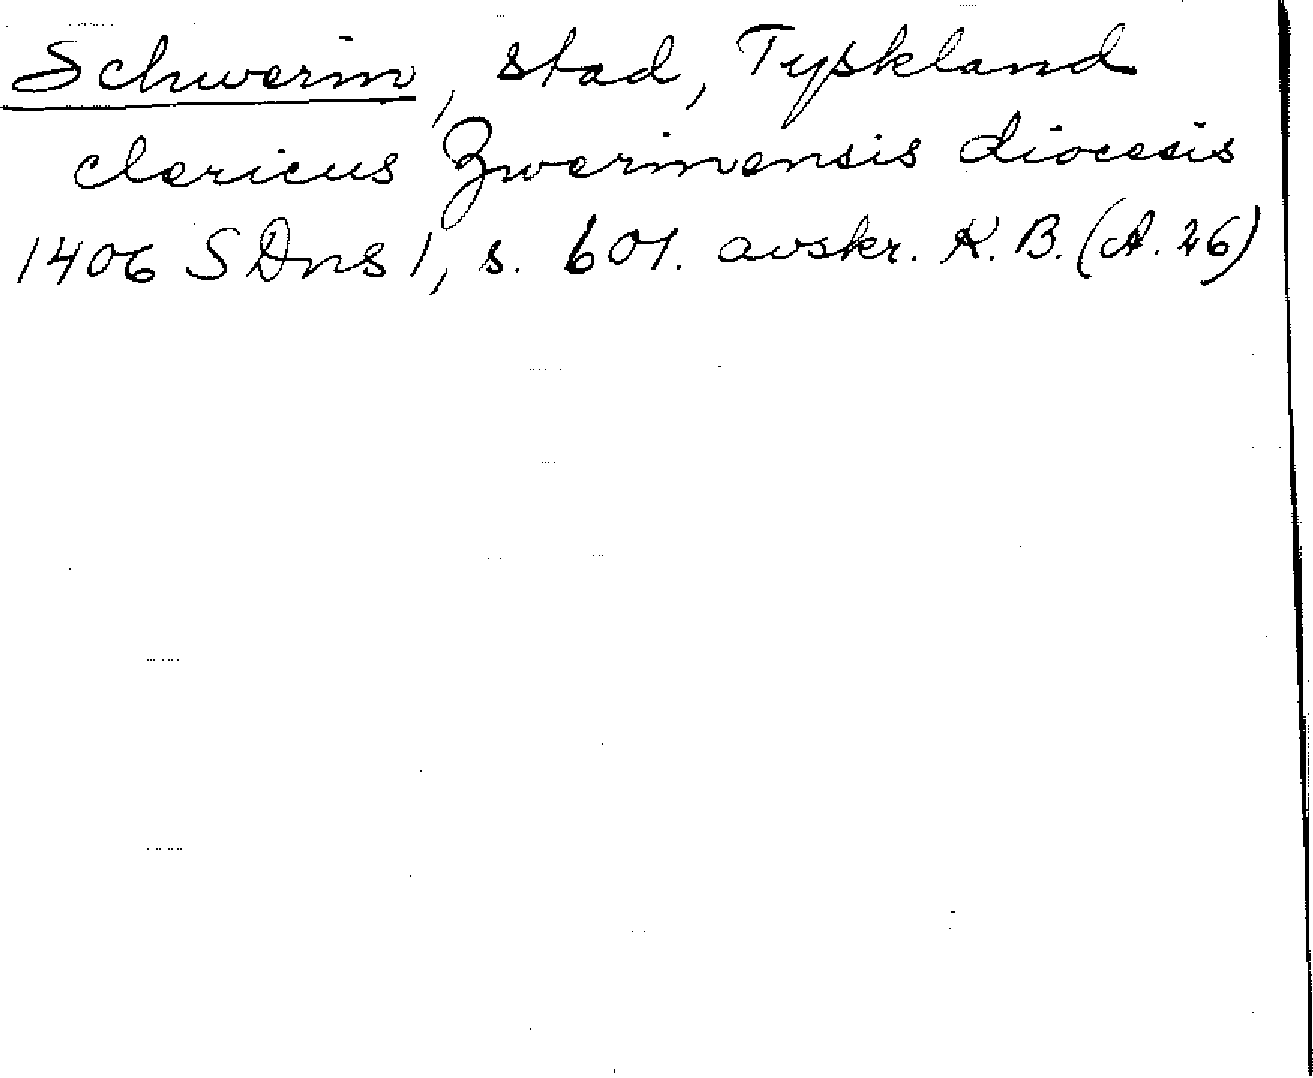 Schwerin, stad, Tyskland
clericus Zwerinensis diocesis
1406 SDns 1, s. 601. avskr. K.B. (A. 26)